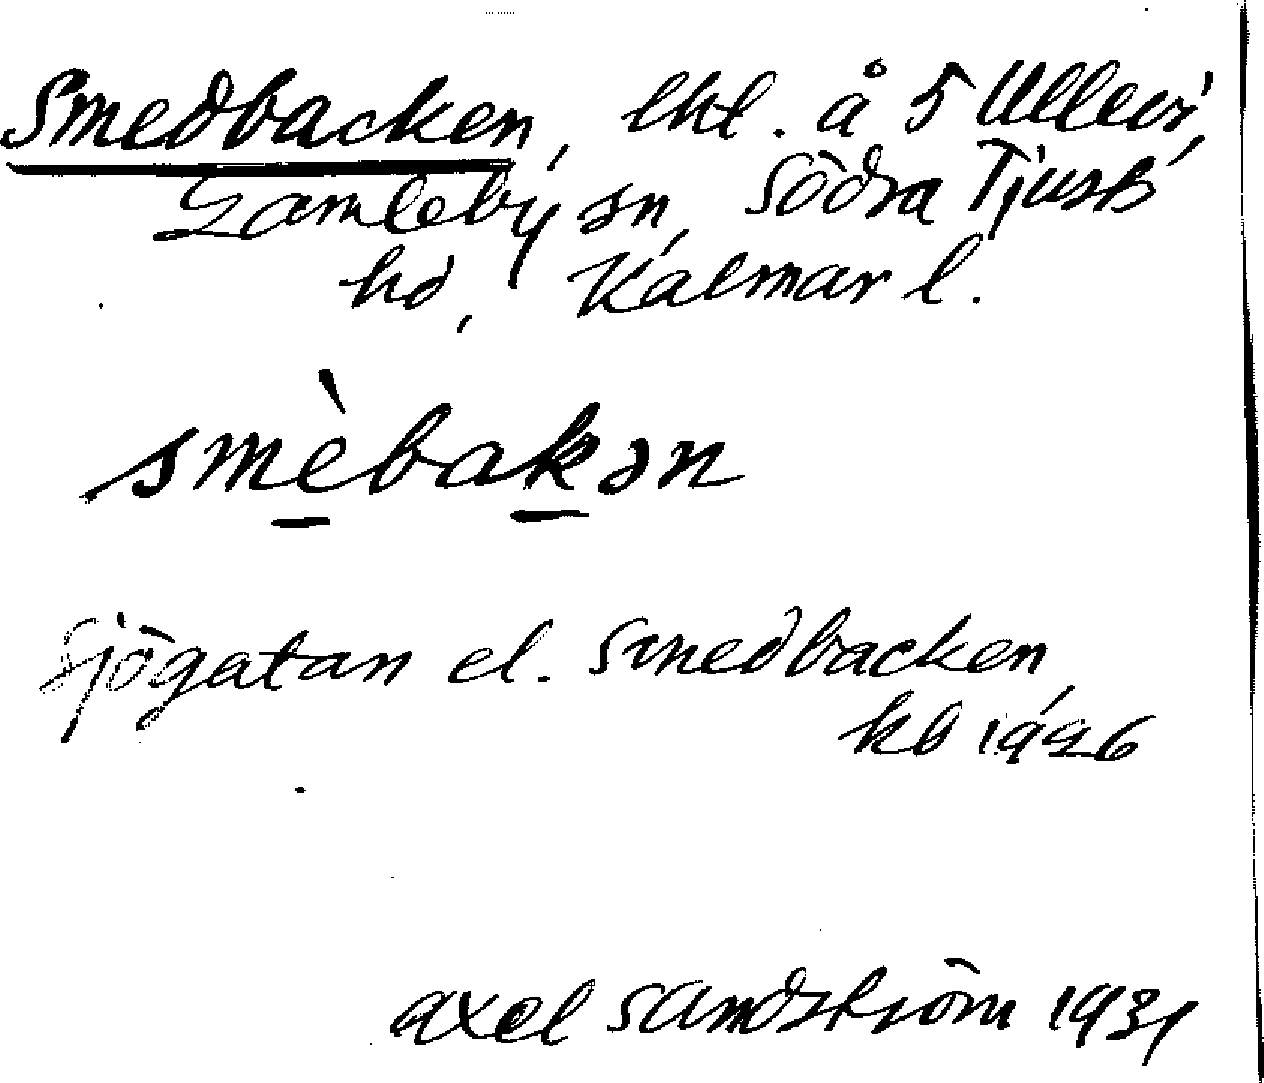 Smedbacken, lht. å S Ullevi,
Gamleby sn, Södra Tjusts
hd, Kalmar l.
smèbakən
Sjögatan el. Smedbacken,
kb 1926
Axel Sandström 1931